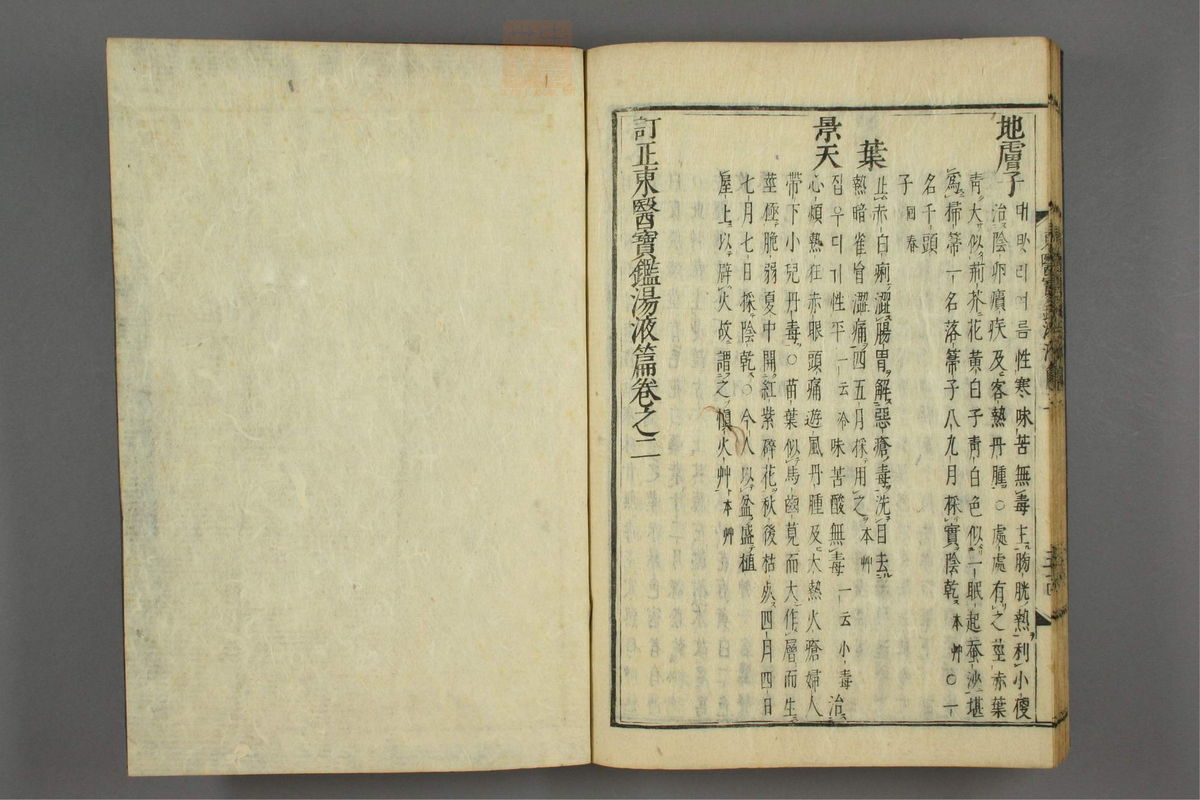 地膚子
대ᄡᆞ리여름性寒味苦無毒主膀胱熱利小便
治陰卵㿉疾及客熱丹腫○處處有之莖赤葉
靑大似荊芥花黃白子靑白色似一眠起蚕沙堪
爲掃箒一名落箒子八九月採實陰乾本艸○一
名千頭
子回春
葉
止赤白痢澀腸胃解惡瘡毒洗目去
熱暗雀盲澀痛四五月採用之本艸
景天
집우디기性平一云冷味苦酸無毒一云小毒治
心煩熱狂赤眼頭痛遊風丹腫及大熱火瘡婦人
帶下小兒丹毒○苗葉似馬齒莧而大作層而生
莖極脆弱夏中開紅紫碎花秋後枯死四月四日
七月七日採陰乾○今人以盆盛植
屋上以辟火故謂之愼火艸本艸
訂正東醫寶鑑湯液篇卷之二